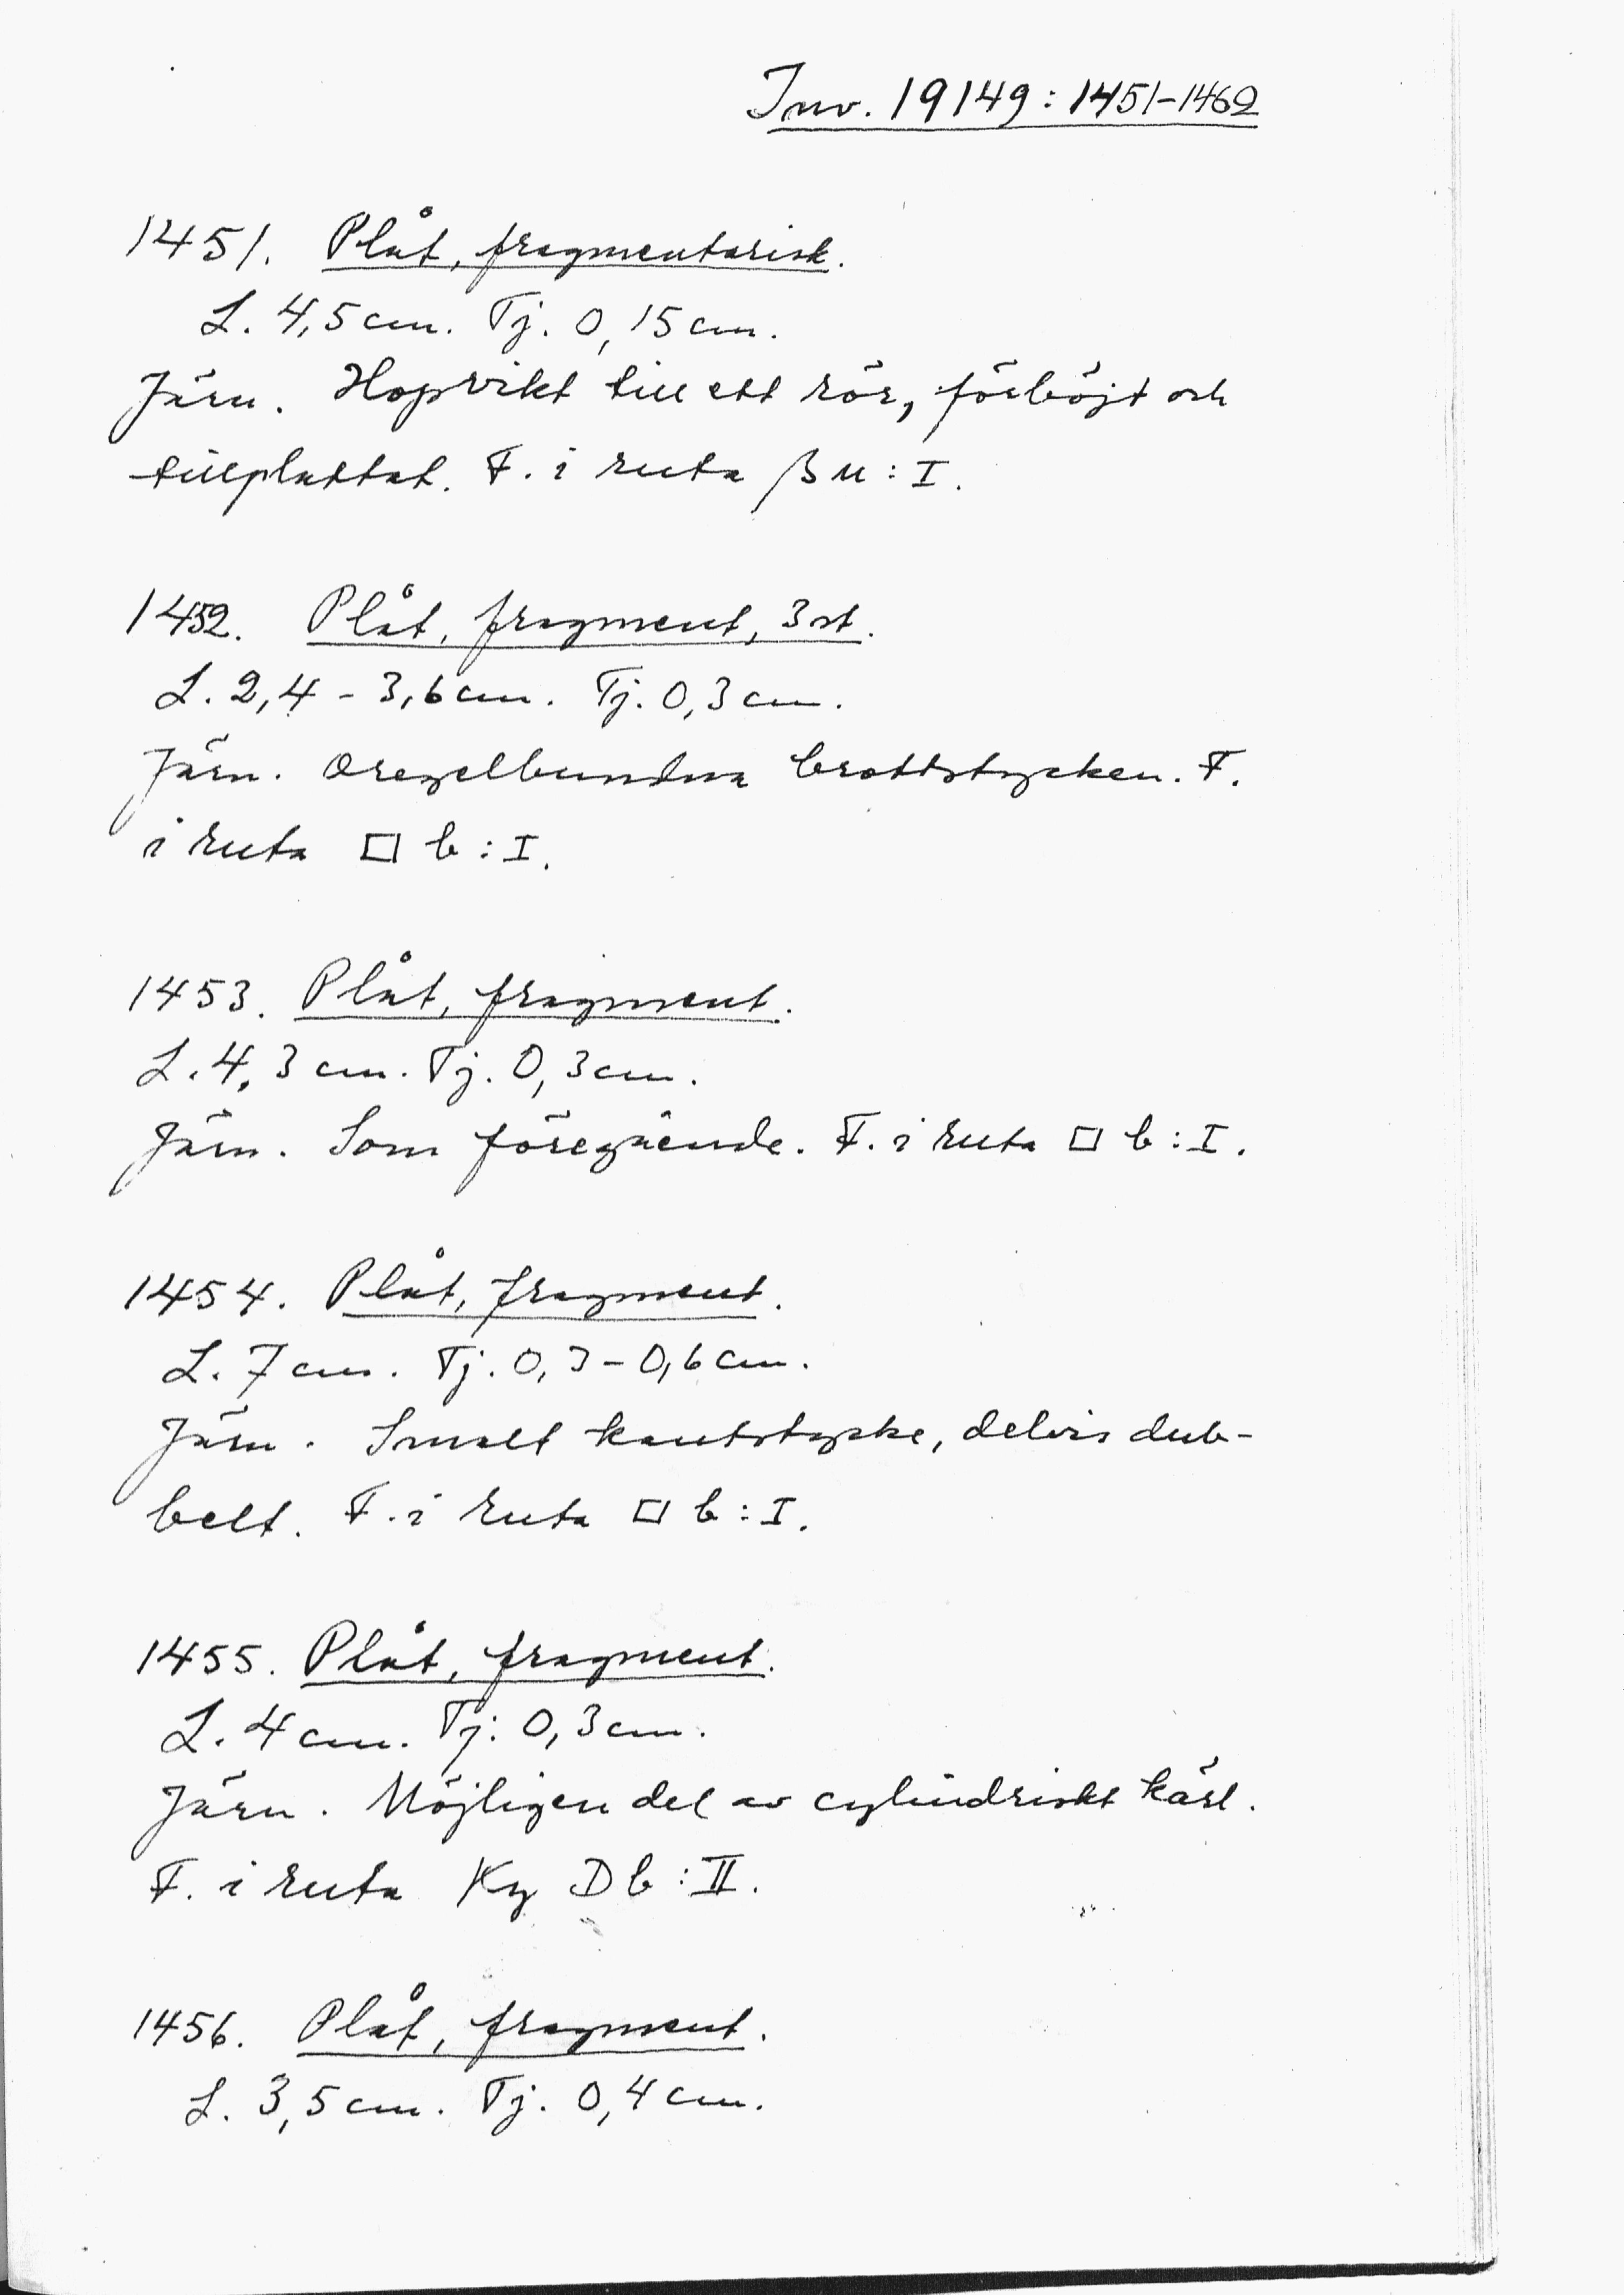 Inv. 19149:1451-1462
1451. Plåt, fragmentarisk.
L. 4,5 cm. Tj. 0,15 cm.
Järn. Hopvikt till ett rör, förböjt och
tillplattat. F. i ruta β u : I.
1452. Plåt, fragment, 3 st.
L. 2,4 - 3,6 cm. Tj. 0,3 cm.
Järn. Oregelbundna brottstycken. F.
i ruta □ b : I.
1453. Plåt, fragment.
L. 4,3 cm. Tj. 0,3 cm.
Järn. Som föregående. F. i ruta □ b : I.
1454. Plåt, fragment.
L. 7 cm. Tj. 0,3 - 0,6 cm.
Järn. Smalt kantstycke, delvis dub-
belt. F. i ruta □ b : I.
1455. Plåt, fragment.
L. 4 cm. Tj. 0,3 cm.
Järn. Möjligen del av cylindriskt kärl.
F. i ruta Ky D b : II.
1456. Plåt, fragment.
L. 3,5 cm. Tj. 0,4 cm.